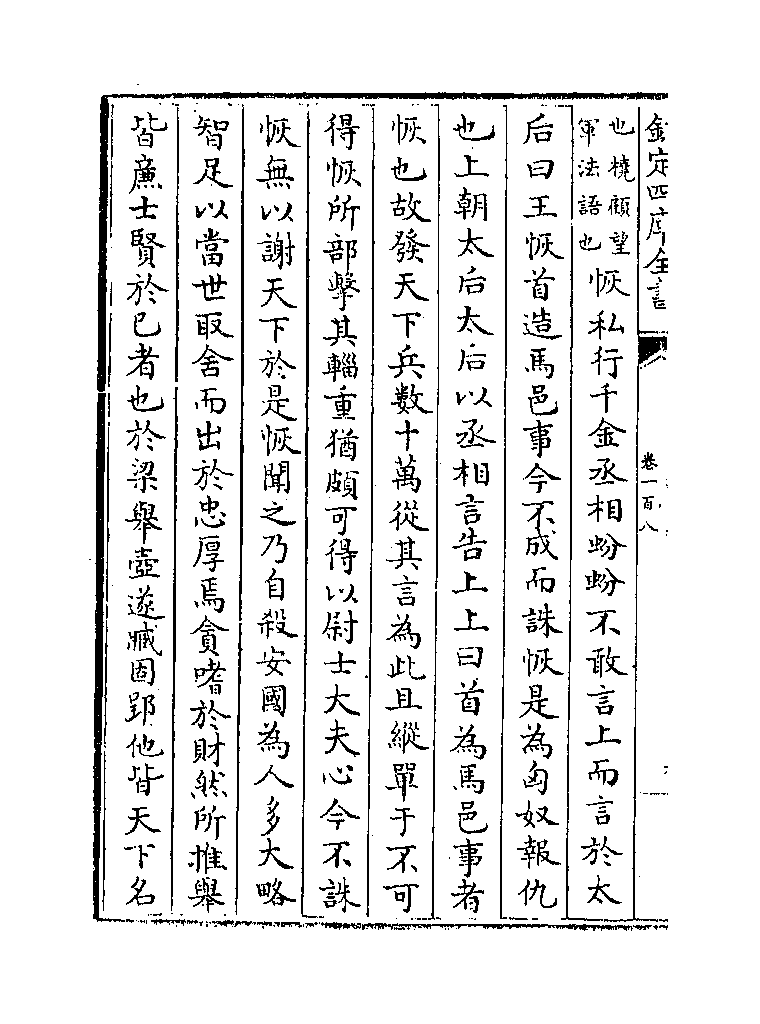 欽定四庫全書
卷一百八
也橈顧望
軍法語也
恢私行千金丞相蚡蚡不敢言上而言於太
后曰王恢首造馬邑事今不成而誅恢是為匈奴報仇
也上朝太后太后以丞相言告上上曰首為馬邑事者
恢也故發天下兵數十萬從其言為此且縱單于不可
得恢所部擊其輜重猶頗可得以尉士大夫心今不誅
恢無以謝天下於是恢聞之乃自殺安國為人多大略
智足以當世取舍而出於忠厚焉貪嗜於財然所推舉
皆廉士賢於已者也於梁舉壺遂臧固郢他皆天下名